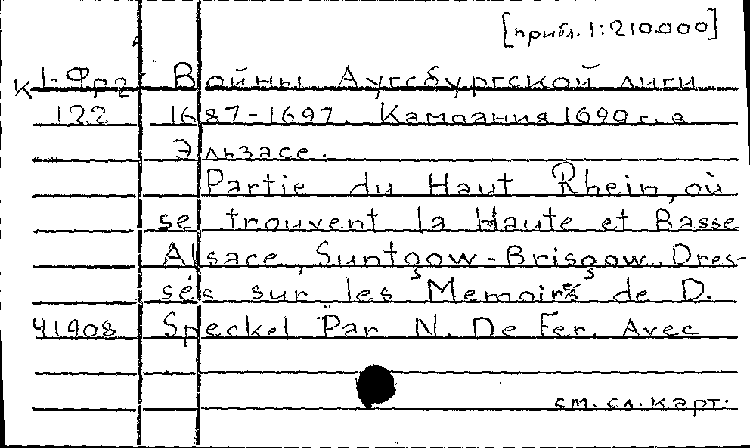 [прибл. 1:210.000]
К 1-Фр2 Войны Аугсбургской лиги
122 1687-1697. Кампания 1690 г. в
Эльзасе.
Partie du Haut Rhein, où
se trouvent la Haute et Basse
Alsace, Suntgow-Brisgow. Dres-
sés sur les Memoirs de D.
41908 Speckel Par N. De Fer. Avec
см. сл. карт.